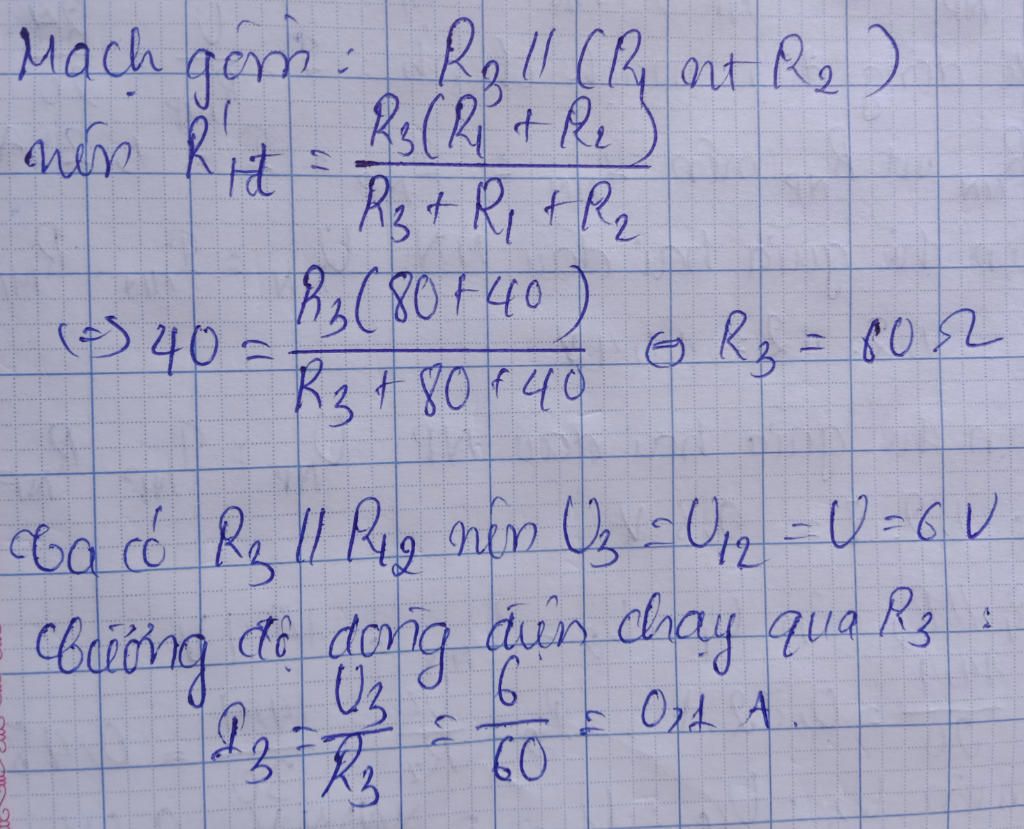 Mạch gồm: R₃ // (R₁ nt R₂)
nên R'tđ = R₃(R₁ + R₂) / R₃ + R₁ + R₂
(=) 40 = R₃(80 + 40) / R₃ + 80 + 40 ⇔ R₃ = 60 Ω
Ta có R₃ // R₁₂ nên U₃ = U₁₂ = U = 6 V
Cường độ dòng điện chạy qua R₃ :
I₃ = U₃ / R₃ = 6 / 60 = 0,1 A.